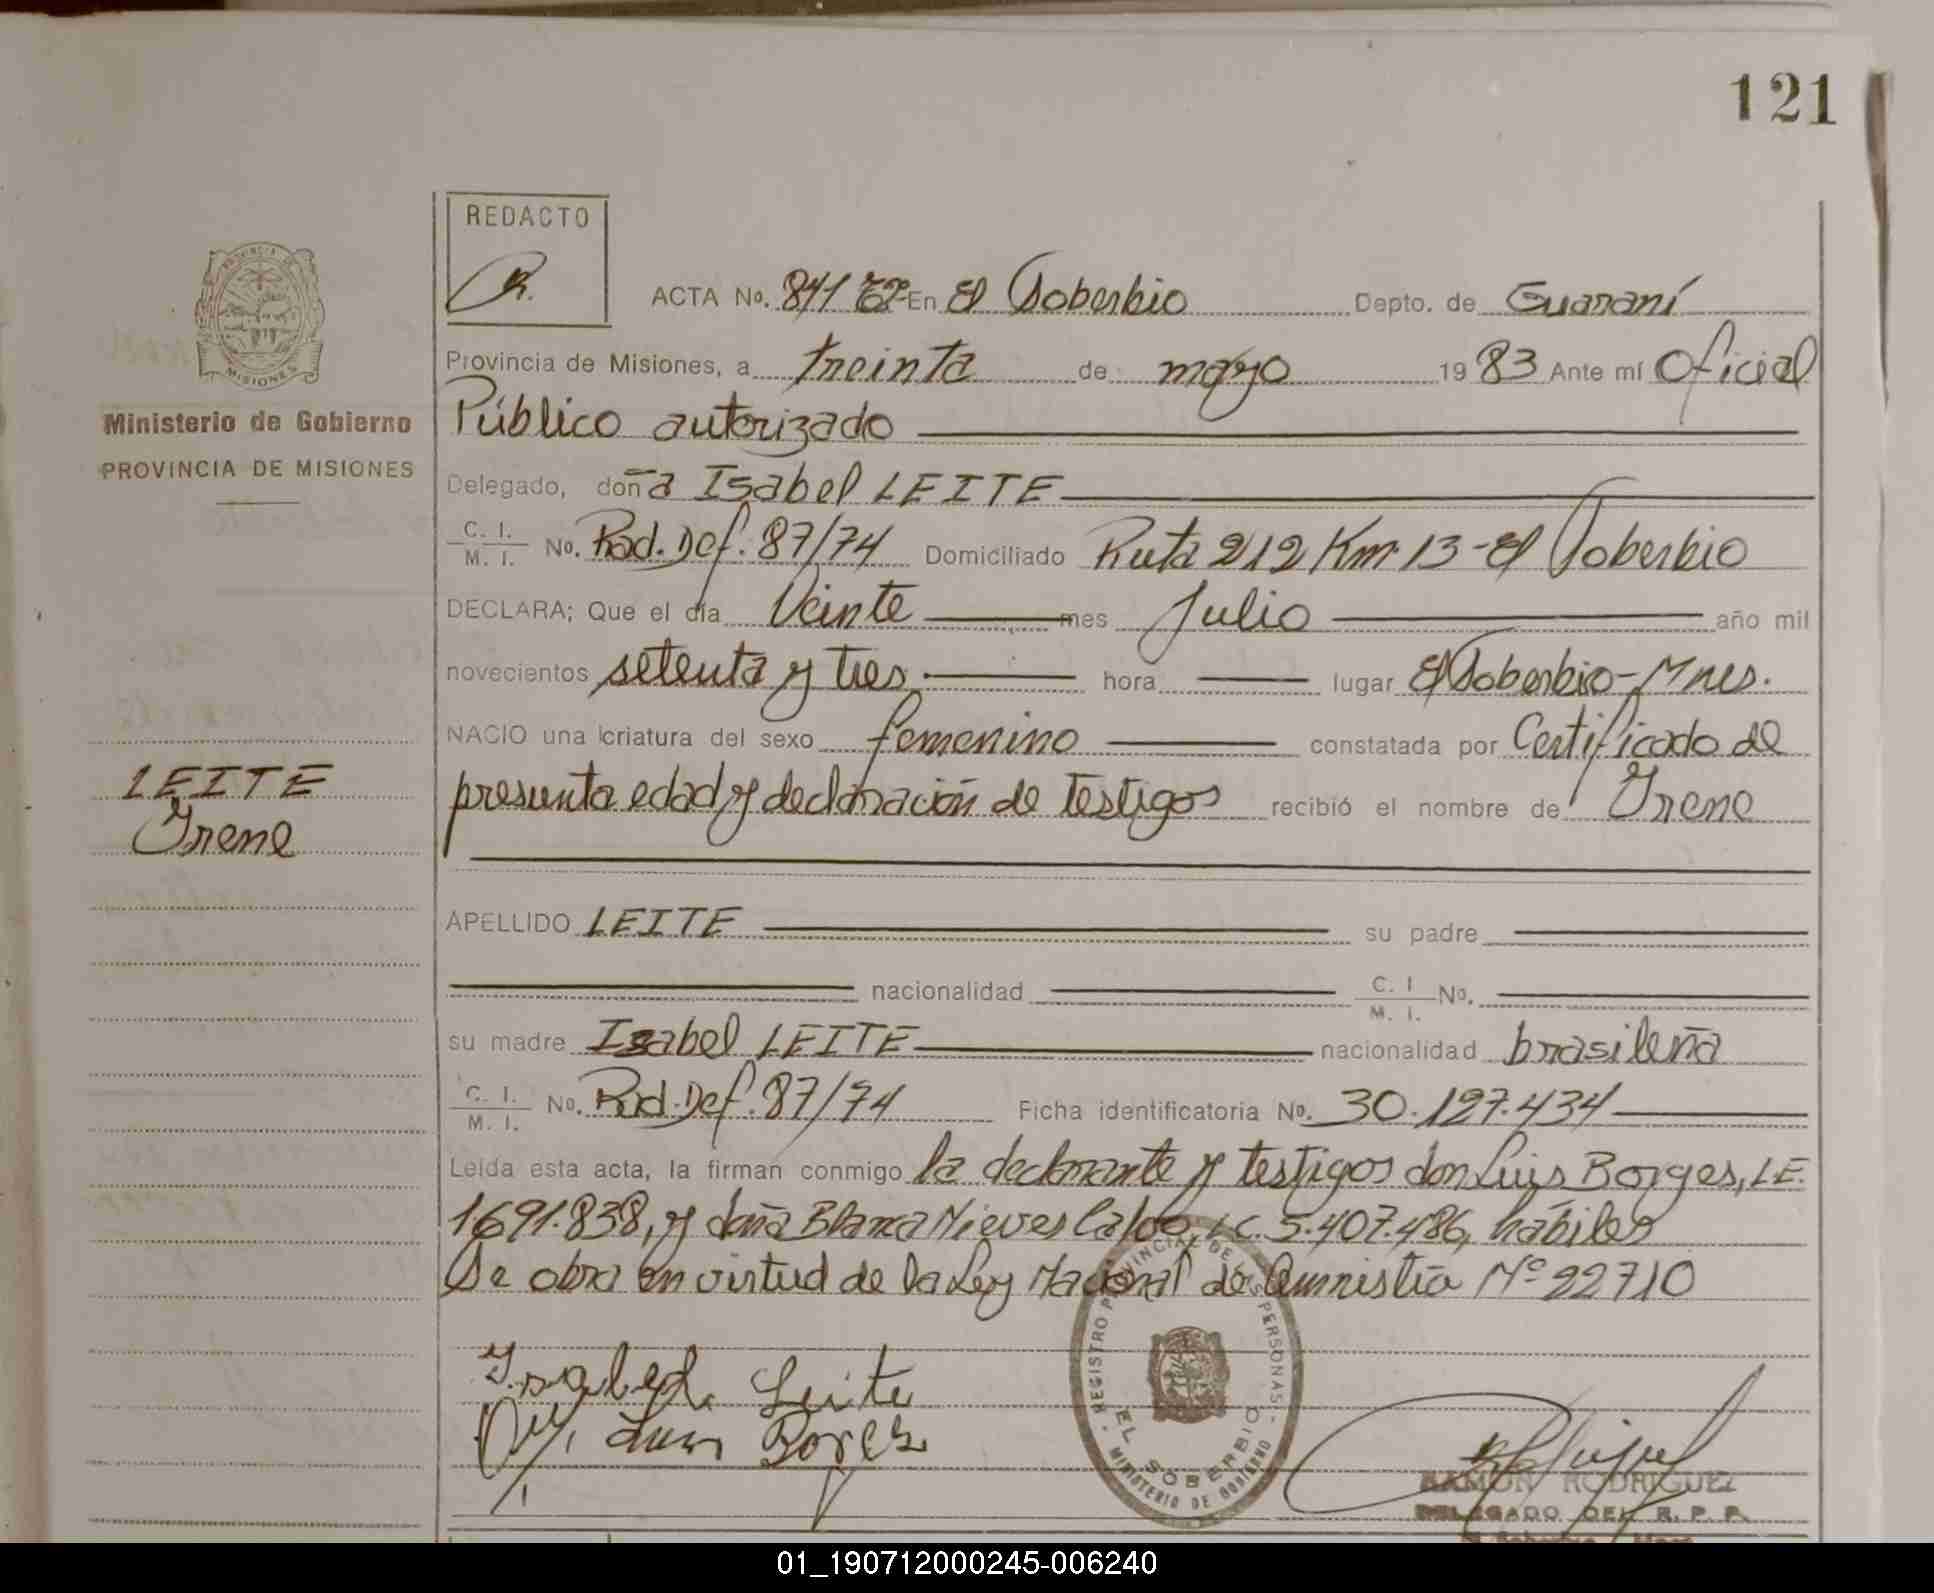 121
REDACTO
PROVINCIA DE
MISIONES
Ministerio de Gobierno
PROVINCIA DE MISIONES
LEITE
Irene
ACTA No. 841 En El Soberbio Depto. de Guaraní
Provincia de Misiones, a treinta de mayo 1983 Ante mí Oficial
Público autorizado
Delegado, doña Isabel LEITE
C. I. M. I. No. Rad. Def. 87/74 Domiciliado Ruta 212 Km 13 - El Soberbio
DECLARA; Que el día Veinte mes Julio año mil
novecientos setenta y tres hora lugar El Soberbio - Mnes.
NACIO una criatura del sexo femenino constatada por Certificado de
presunta edad y declaración de testigos recibió el nombre de Irene
APELLIDO LEITE su padre
nacionalidad C. I M. I. No.
su madre Isabel LEITE nacionalidad brasileña
C. I. M. I. No. Rad. Def. 87/74 Ficha identificatoria No. 30.127.434
Leída esta acta, la firman conmigo la declarante y testigos don Luis Borges, LE.
1691.838, y doña Blanca Nieves LC. 5.407.486, hábiles
Se obra en virtud de la Ley Nacional de Amnistía Nº 22710
Isabel Leite
Luis Borges
REGISTRO PROVINCIAL DE LAS PERSONAS
EL SOBERBIO
MINISTERIO DE GOBIERNO
RAMON RODRIGUEZ
DELEGADO DEL R. P. P.
El Soberbio - Mnes
01_190712000245-006240